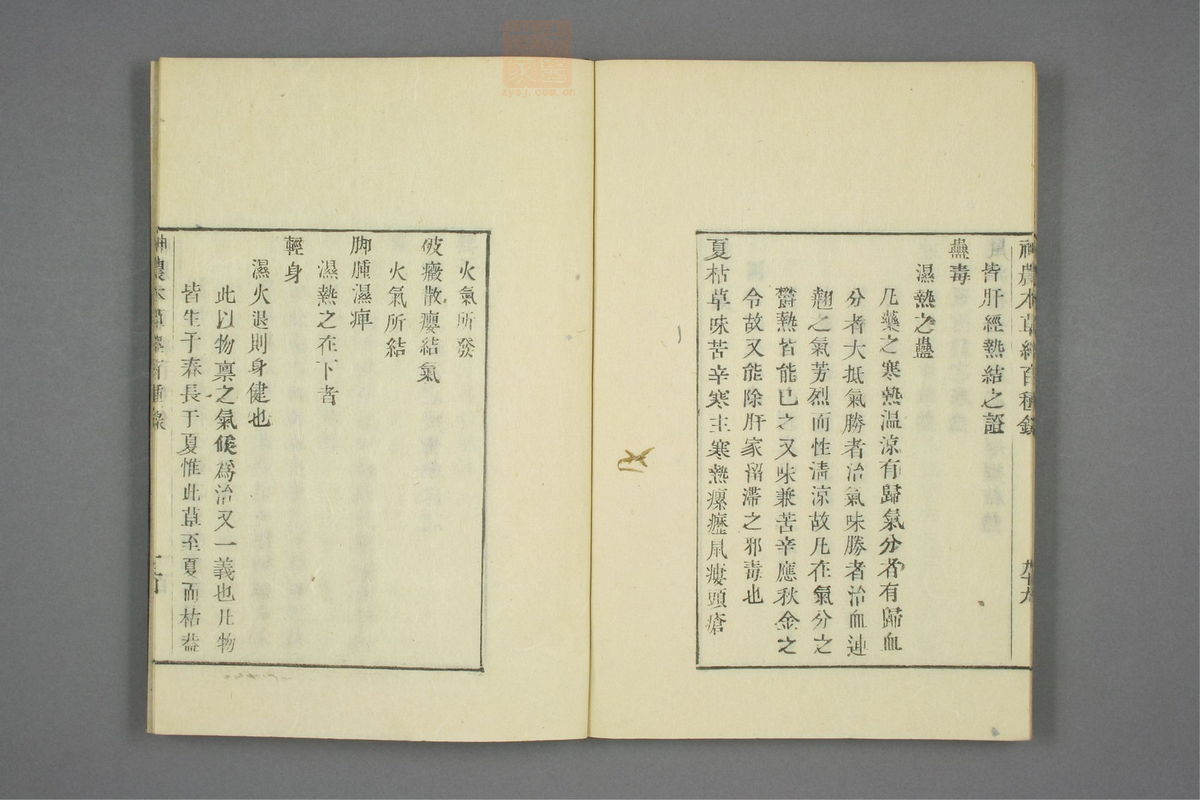 神農本草經百種錄
九十九
皆肝經熱結之證
蠱毒
濕熱之蠱
凡藥之寒熱温涼有歸氣分者有歸血
分者大抵氣勝者治氣味勝者治血連
翹之氣芳烈而性清涼故凡在氣分之
鬱熱皆能已之又味兼苦辛應秋金之
令故又能除肝家留滯之邪毒也
夏枯草味苦辛寒主寒熱瘰癧鼠瘻頭瘡
火氣所發
破癥散癭結氣
火氣所結
脚腫濕痺
濕熱之在下者
輕身
濕火退則身健也
此以物禀之氣候爲治又一義也凡物
皆生于春長于夏惟此草至夏而枯葢
神農本草經百種錄
zysj.com.cn